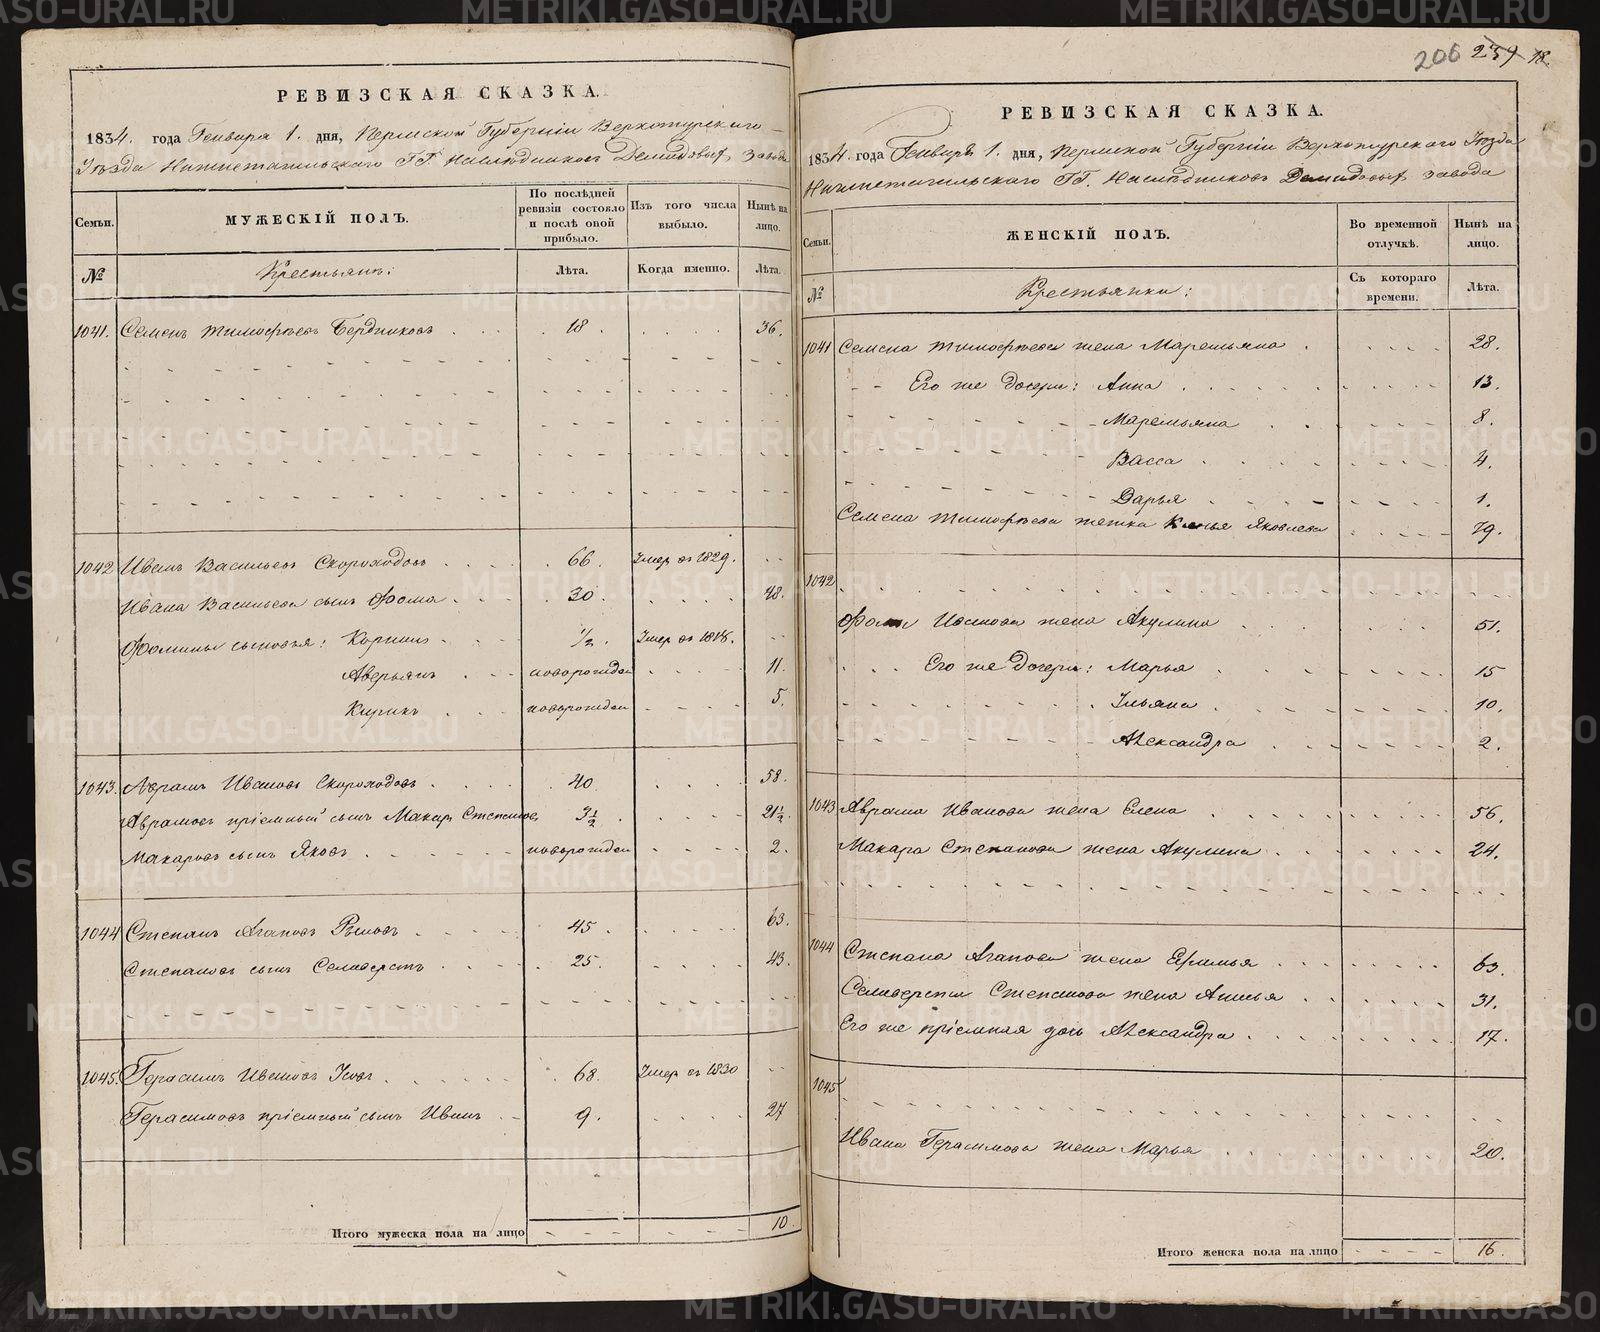 РЕВИЗСКАЯ СКАЗКА.
1834. года Генваря 1. дня, Пермской Губерніи Верхотурскаго
Уѣзда Нижнетагильскаго ГГ. Наслѣдниковъ Демидовыхъ завода
Семьи.
МУЖЕСКІЙ ПОЛЪ.
По послѣдней ревизіи состояло и послѣ оной прибыло.
Изъ того числа выбыло.
Нынѣ на лицо.
№
Крестьянъ:
Лѣта.
Когда именно.
Лѣта.
1041. Семенъ Тимофѣевъ Бердниковъ 18. 36.
1042 Иванъ Васильевъ Скороходовъ 66. Умер въ 1829.
Ивана Васильева сынъ Фома 30. 48.
Фомины сыновья: Корнилъ 1/2. Умер въ 1818.
Аверьянъ новорожден 11.
Кирикъ новорожден 5.
1043. Аврамъ Ивановъ Скороходовъ 40 58.
Аврамовъ пріемный сынъ Макар Степановъ 3 1/2. 21 1/2.
Макаровъ сынъ Яковъ новорожден 2.
1044 Степанъ Агаповъ 45. 63.
Степановъ сынъ Селиверстъ 25. 43.
1045. Герасимъ Ивановъ 68. Умер въ 1830
Герасимовъ пріемный сынъ Иванъ 9. 27
Итого мужеска пола на лицо 10.
206 239 18.
РЕВИЗСКАЯ СКАЗКА.
1834. года Генваря 1. дня, Пермской Губерніи Верхотурскаго Уѣзда
Нижнетагильскаго ГГ. Наслѣдниковъ Демидовыхъ завода
Семьи.
ЖЕНСКІЙ ПОЛЪ.
Во временной отлучкѣ.
Нынѣ на лицо.
№
Крестьянки:
Съ котораго времени.
Лѣта.
1041 Семена Тимофѣева жена Маремьяна 28.
Его же дочери: Анна 13.
Маремьяна 8.
Васса 4.
Дарья 1.
Семена Тимофѣева тетка Яковлева 79.
1042
Фомы Иванова жена Акулина 51.
Его же дочери: Марья 15
Ульяна 10.
Александра 2.
1043 Аврама Иванова жена Елена 56.
Макара Степанова жена Акулина 24.
1044 Степана Агапова жена Ефимья 63.
Селиверста Степанова жена Анисья 31.
Его же пріемная дочь Александра 17.
1045
Ивана Герасимова жена Марья 20.
Итого женска пола на лицо 16.
METRIKI.GASO-URAL.RU